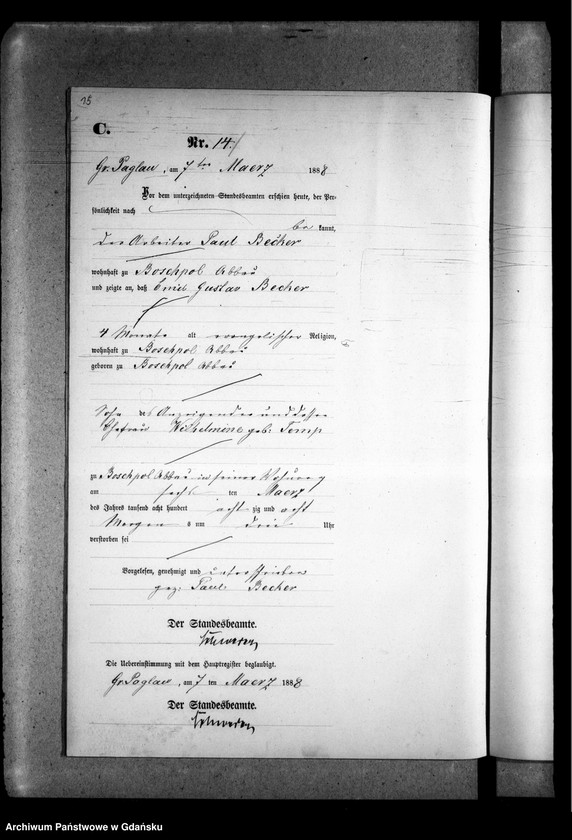 15
C.
Nr. 14.
Gr. Paglau, am 7ten Maerz 1888
Vor dem unterzeichneten Standesbeamten erschien heute, der Per-
sönlichkeit nach
be kannt,
der Arbeiter Paul Becher
wohnhaft zu Boschpol Abbau
und zeigte an, daß Emil Gustav Becher
4 Monate alt evangelischer Religion,
wohnhaft zu Boschpol Abbau
geboren zu Boschpol Abbau
Sohn des Anzeigenden und dessen
Ehefrau Wilhelmine geb:
zu Boschpol Abbau in seiner Wohnung
am sechs ten Maerz
des Jahres tausend acht hundert acht zig und acht
Morgen s um drei Uhr
verstorben sei
Vorgelesen, genehmigt und unterschrieben
gez: Paul Becher
Der Standesbeamte.
Die Uebereinstimmung mit dem Hauptregister beglaubigt.
Gr. Paglau, am 7 ten Maerz 1888
Der Standesbeamte.
Archiwum Państwowe w Gdańsku